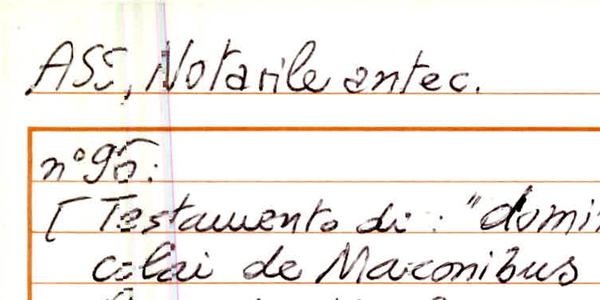 ASS, Notarile antec.
n° 95:
[ Testamento di: "domi
colai de Marconibus